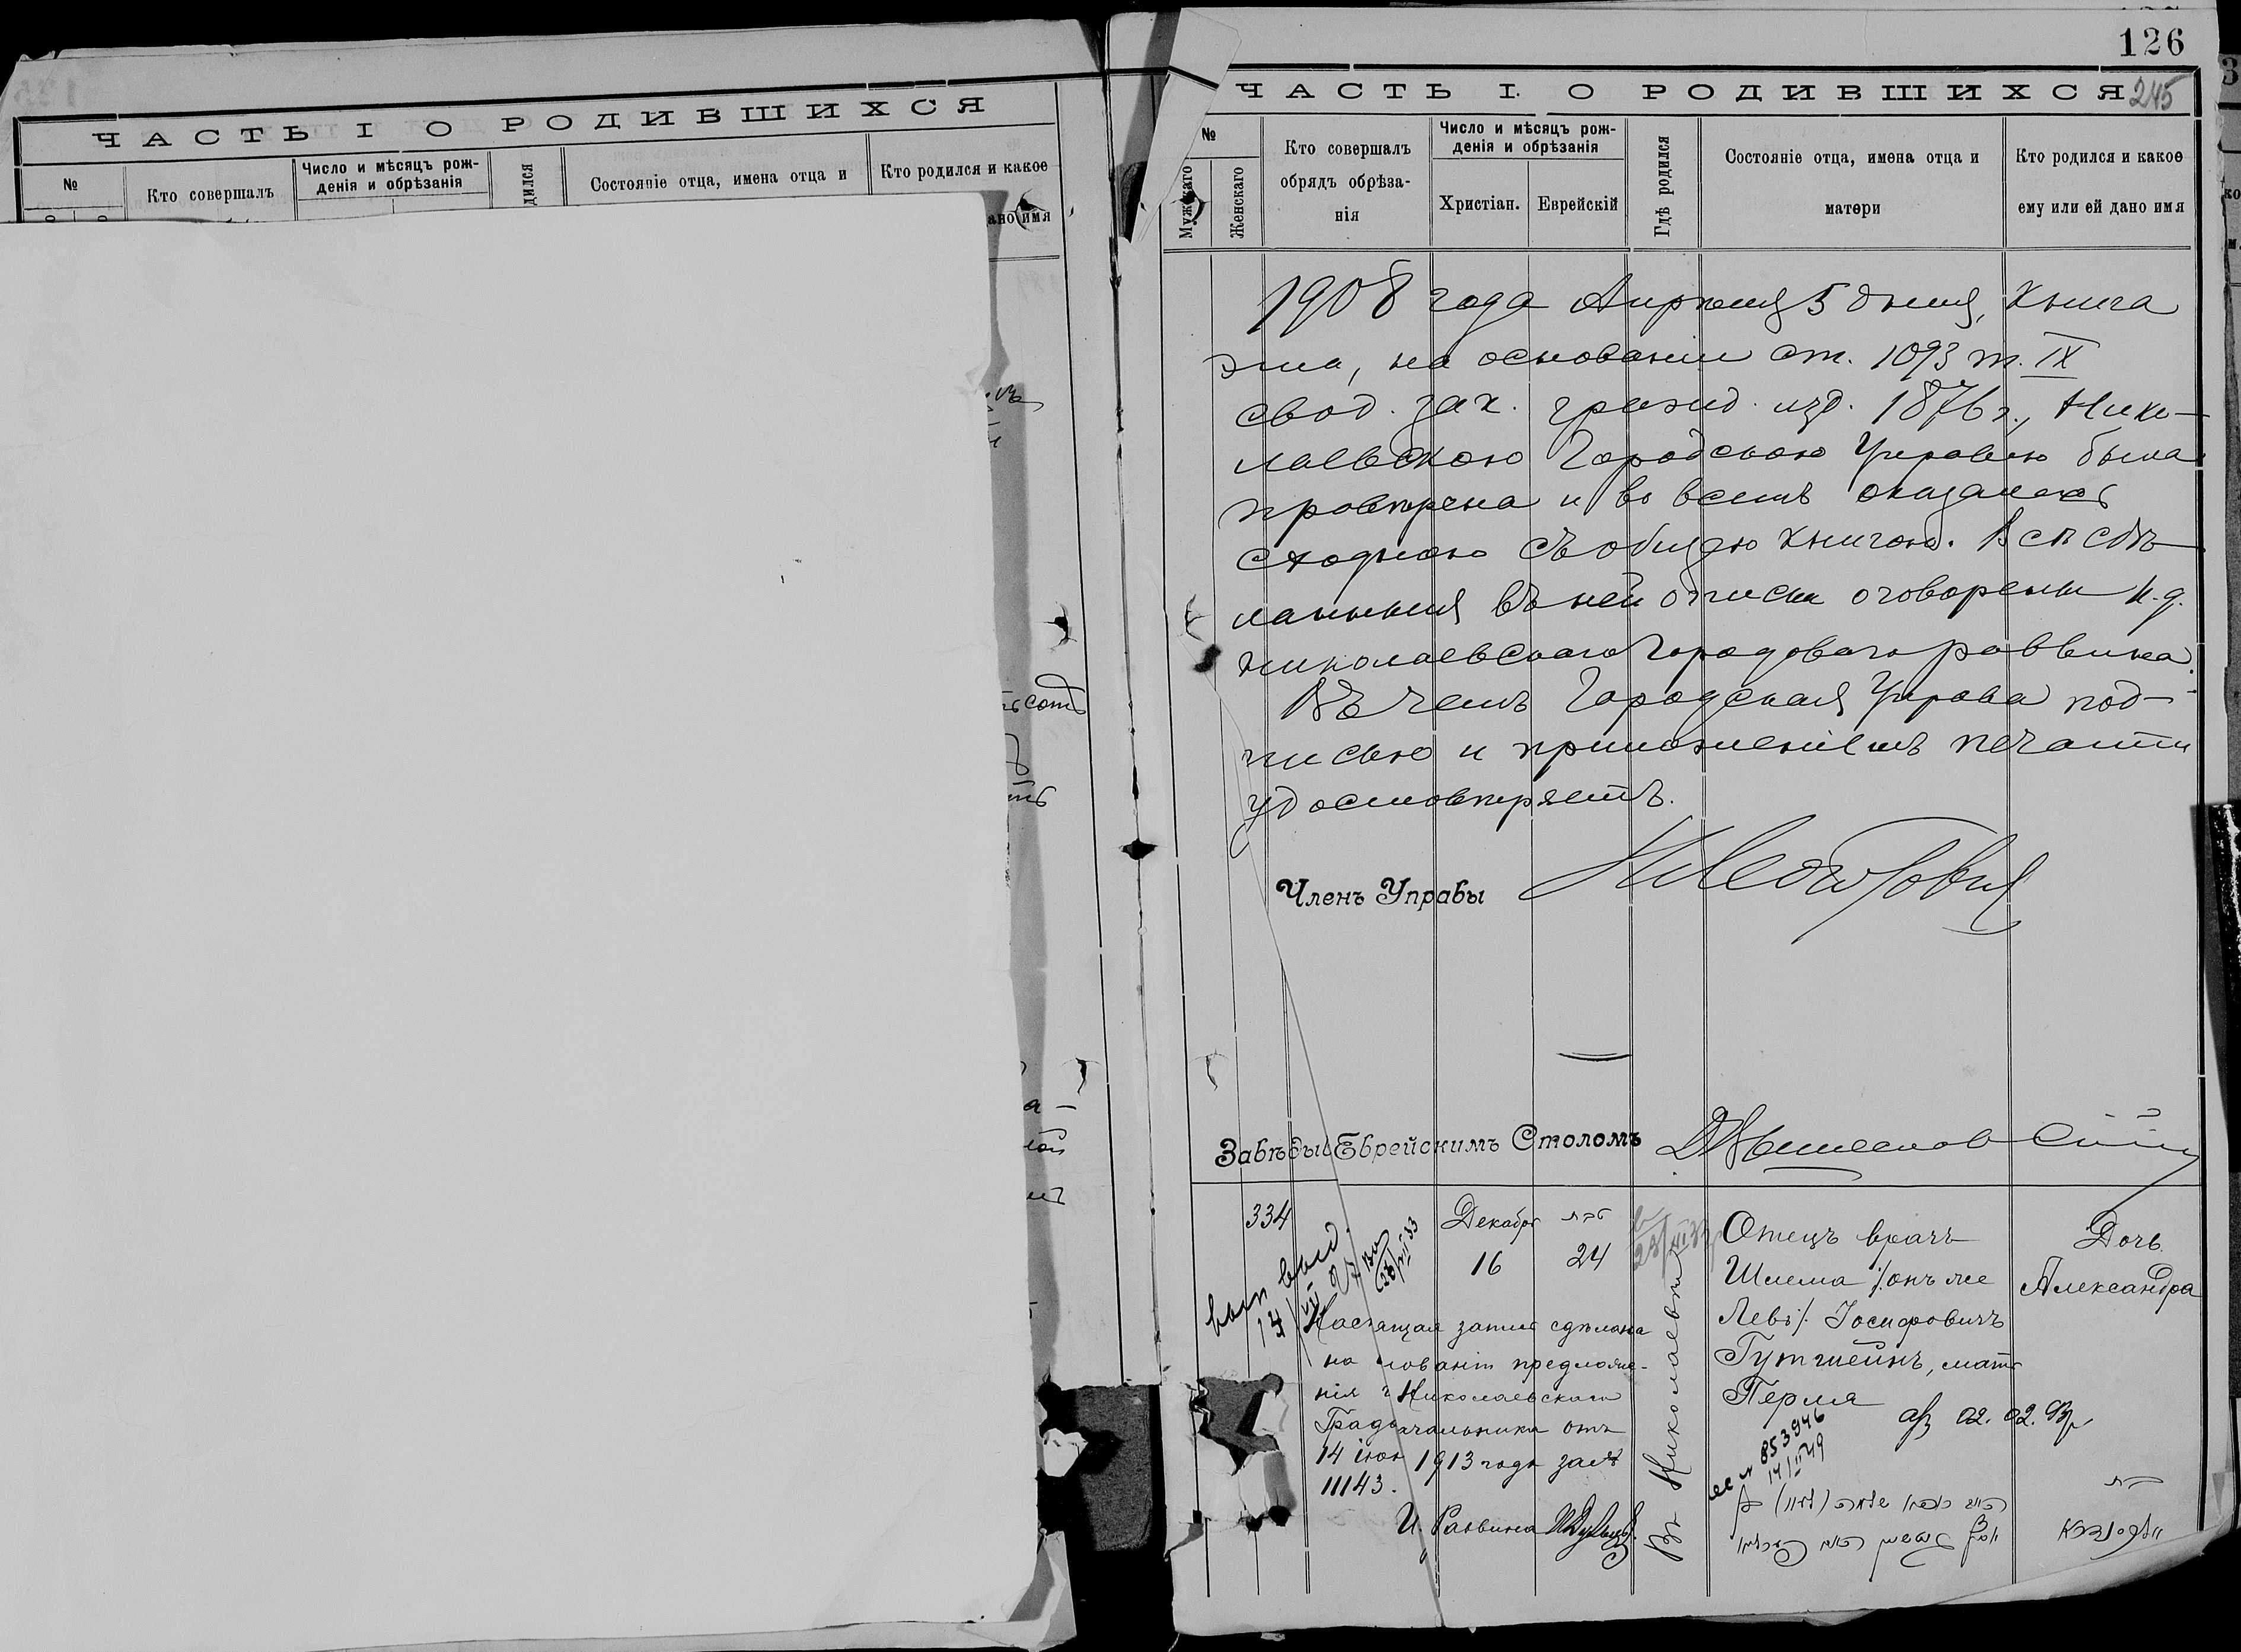 ЧАСТЬ I О РОДИВШИХСЯ
№
Кто совершалъ
Число и мѣсяцъ рож-
денія и обрѣзанія
дился
Состояніе отца, имена отца и
Кто родился и какое
ано имя
126
ЧАСТЬ I. О РОДИВШИХСЯ
245
№
Мужскаго
Женскаго
Кто совершалъ
обрядъ обрѣза-
нія
Число и мѣсяцъ рож-
денія и обрѣзанія
Христіан.
Еврейскій
Гдѣ родился
Состояніе отца, имена отца и
матери
Кто родился и какое
ему или ей дано имя
1908 года Апрѣля 5 дня, Книга
эта, на основаніи ст. 1093 т. IX
свод. зак. гражд. изд. 1876 г., Нико-
лаевскою Городскою Управою была
провѣрена и во всемъ оказалась
сходною съ общею книгою. Всѣ сдѣ-
ланныя въ ней описки оговорены И. д.
Николаевскаго Городового раввина.
Въ чемъ Городская Управа под-
писью и приложеніемъ печати
удостовѣряетъ.
Членъ Управы
Завѣдыв Еврейскимъ Столомъ
334
Декабря
16
טבת
24
Въ Николаевѣ
Отецъ врачъ
Шлема /:онъ же
Левъ:/ Іосифовичъ
Гутштейнъ, мать
Перля
Дочь
Александра
Настящая запись сдѣлана
на нованіи предложе-
нія г Николаевскаго
Градоначальника отъ
14 іюн 1913 года за №
11143.
И. Раввина
853946
14/II 49
02. 02. 93г.